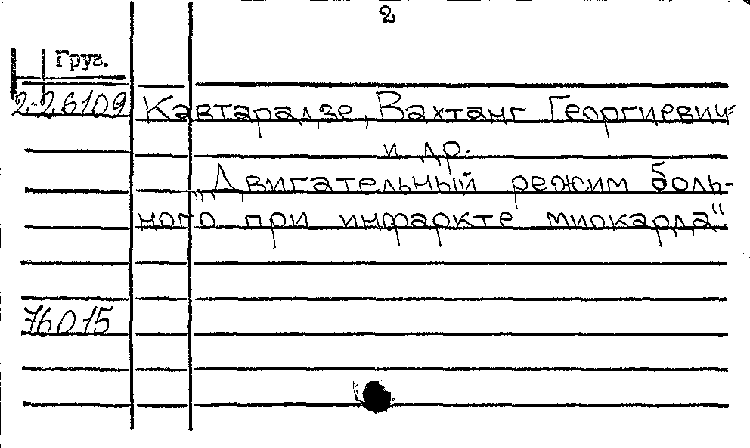 2
Груз.
2-26109 Кавтарадзе, Вахтанг Георгиевич
и др.
„Двигательный режим боль-
ного при инфаркте миокарда"
76015